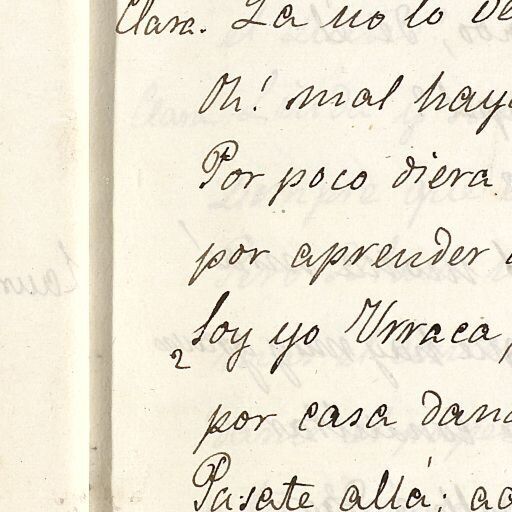 Clara. Ya no lo
Oh! mal hay
Por poco diera
por aprender
¿Soy yo Urraca,
por casa dan
Pasate allá;